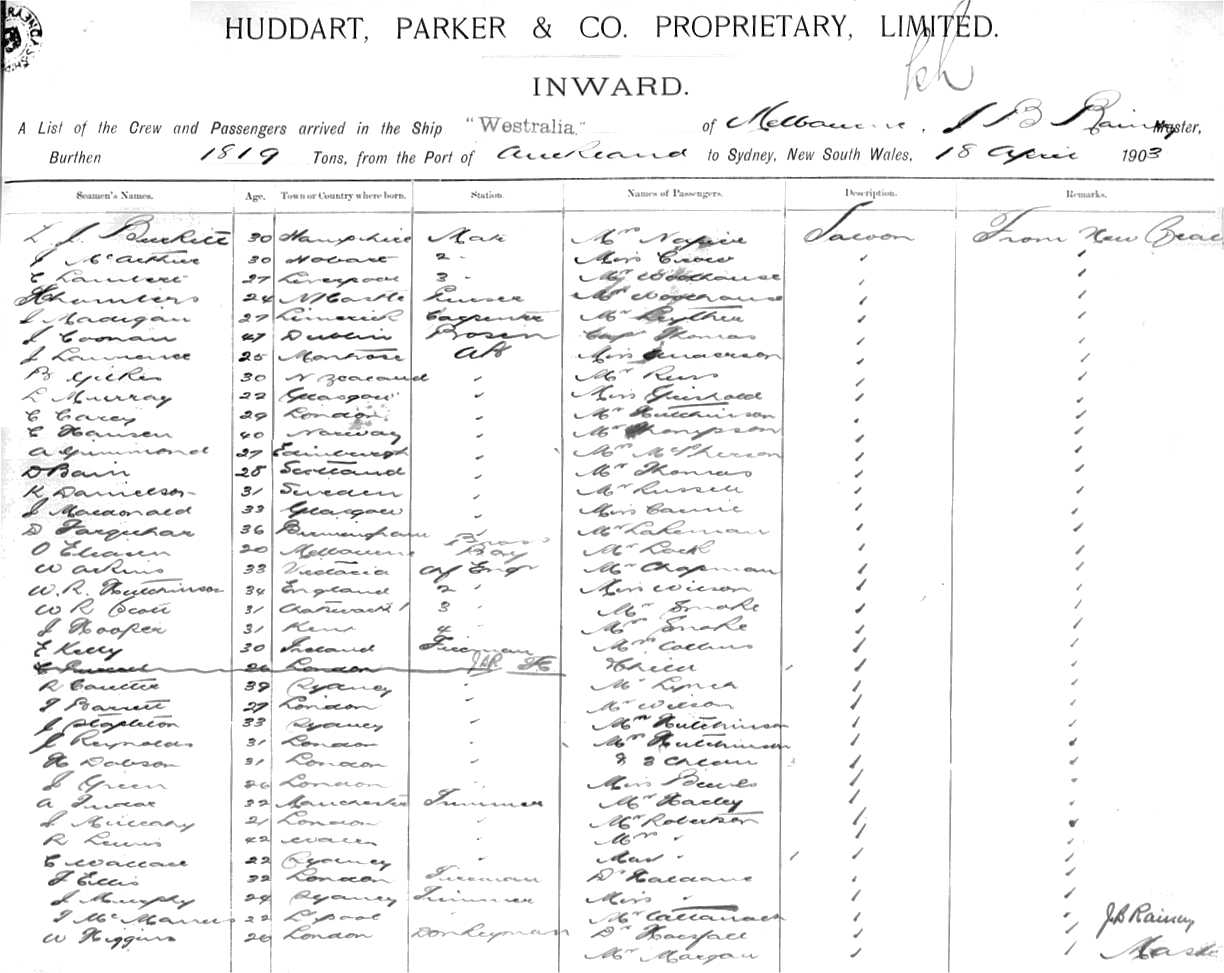 HUDDART, PARKER & CO. PROPRIETARY, LIMITED.
INWARD.
A List of the Crew and Passengers arrived in the Ship "Westralia." of Melbourne, J B Rainey Master,
Burthen 1819 Tons, from the Port of Auckland to Sydney, New South Wales, 18 April 1903
Seamen's Names. Age. Town or Country where born. Station. Names of Passengers. Description. Remarks.
30 Hampshire Mate Mrs Napier Saloon From New Zeal
J McArthur 30 Hobart 2 Miss Crow
C Lambert 27 Liverpool 3 Mr Woodhouse
Chambers 24 NCastle Purser Mrs Woodhouse
J Madigan 27 Limerick Carpenter Mr
J Coonan 47 Dublin Bosun Capt Thomas
J Lawrence 25 Montrose AB Miss Anderson
30 N Zealand " Mr Russ
L Murray 22 Glasgow " Miss Grishold
C Carey 29 London " Mr Hutchinson
C Hansen 40 Norway " Mr Thompson
A Gimmond 27 Edinburgh " Mr McPherson
D Bain 28 Scotland " Mr Thomas
K Danielson 31 Sweden " Mr Russell
J Macdonald 33 Glasgow " Miss
D Farquhar 36 Birmingham " Mr Lakeman
O Eliasen 20 Melbourne Brass Boy Mr Lack
W 33 Victoria Chf Engr Mr Chapman
W. R. Hutchinson 34 England 2 " Miss Wilson
W R Scott 31 3 " Mr Smoke
J Hooper 31 Kent 4 " Mrs Smoke
E Kelly 30 Ireland Fireman Mrs Collins
26 London JBR Child
R 39 Sydney " Mr Lynch
J Barrett 27 London " Mr Wilson
J Stapleton 33 Sydney " Mrs Hutchinson
J Reynolds 31 London " Mrs Hutchinson
H Dobson 31 London " & 3 Chldn
J Green 26 London " Miss
A Tudor 22 Manchester Trimmer Mr Harley
J 21 London " Mr Robertson
R Lewis 42 Wales " Mrs "
C Wallace 22 Sydney " Mas "
F Ellis 32 London Fireman Dr Haldane
J Murphy 24 Sydney Trimmer Miss "
22 L'pool " Mr Cattanach J.B Rainey
W Higgins 26 London Donkeyman Dr Horsfall Maste
Mr Morgan